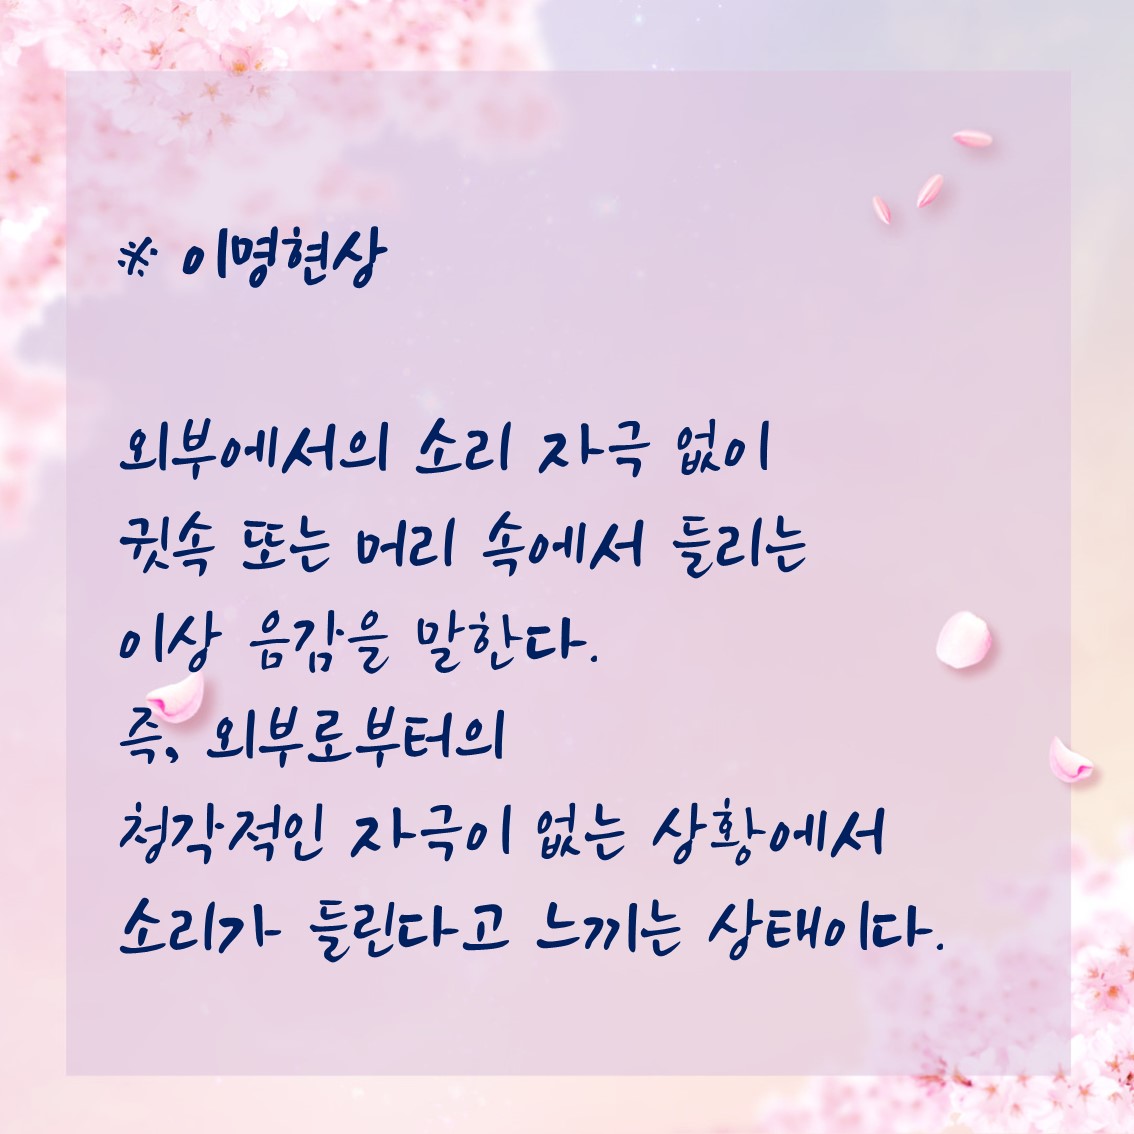 ※ 이명현상
외부에서의 소리 자극 없이
귓속 또는 머리 속에서 들리는
이상 음감을 말한다.
즉, 외부로부터의
청각적인 자극이 없는 상황에서
소리가 들린다고 느끼는 상태이다.